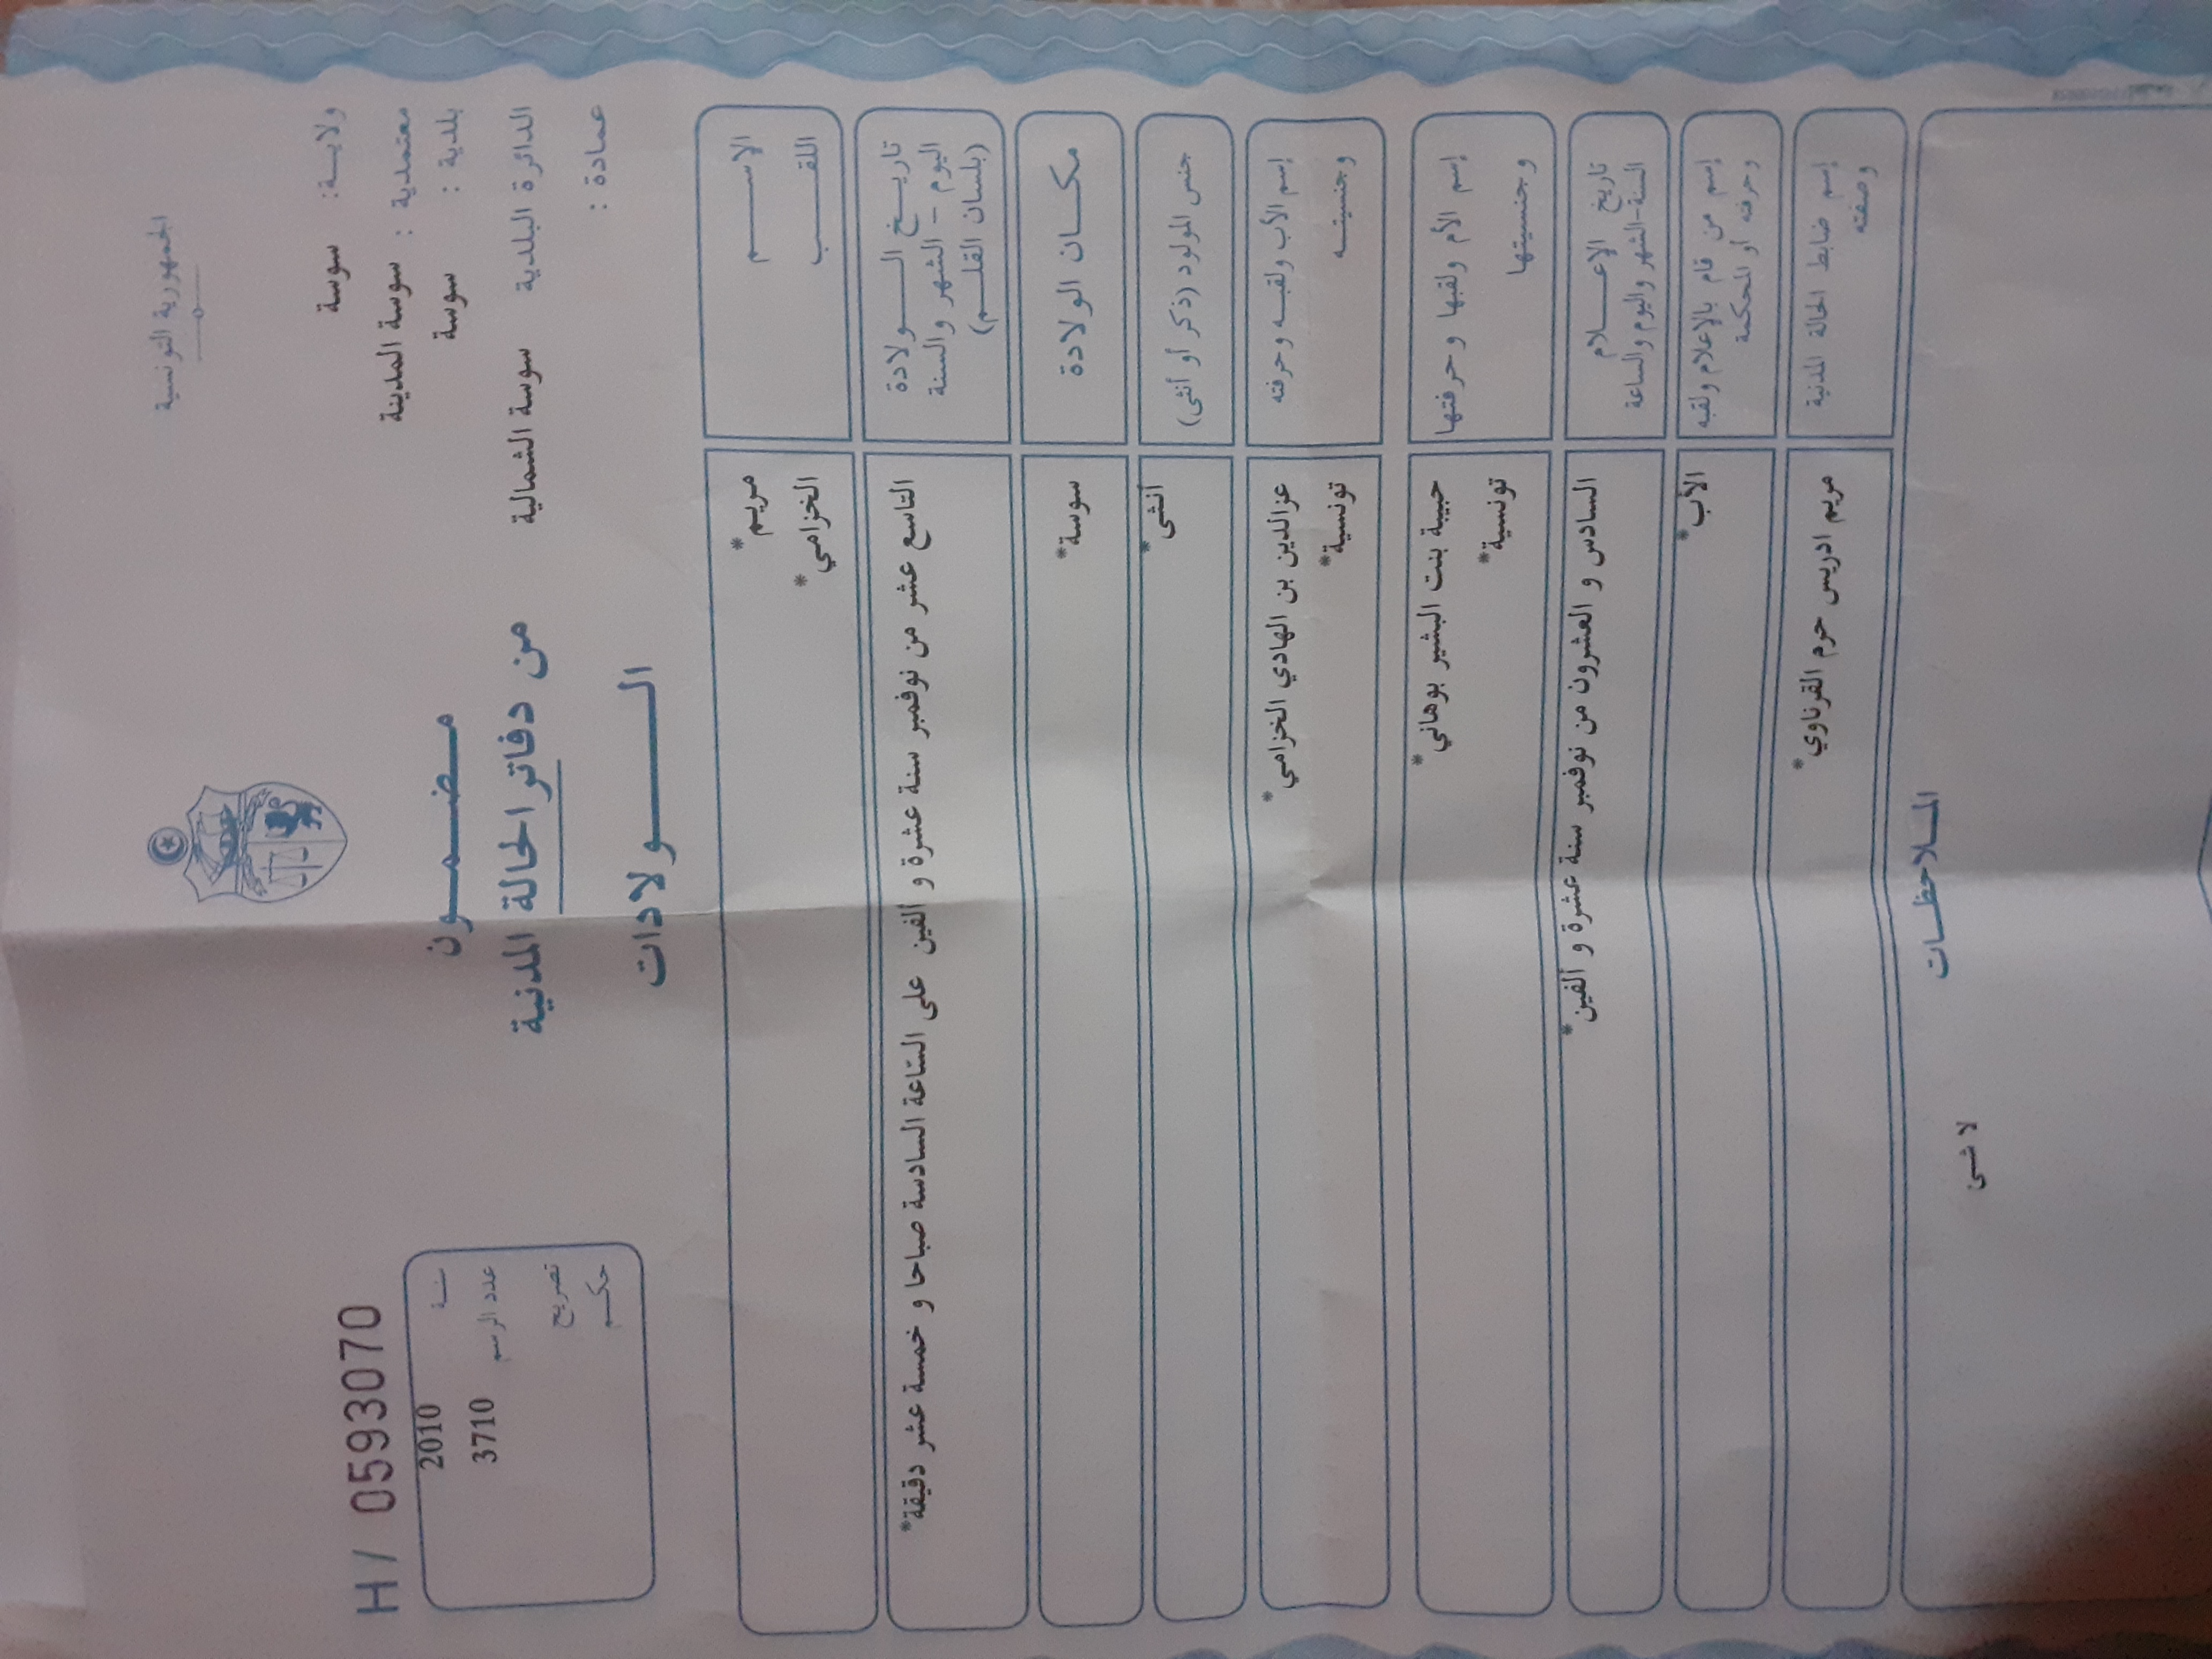 الجمهورية التونسية
ولايــة: سوسة
معتمدية : سوسة المدينة
بلدية : سوسة
الدائرة البلدية سوسة الشمالية
عمادة :
H/ 0593070
سنة 2010
عدد الرسم 3710
تصريح
حكم
مضمون
من دفاتر الحالة المدنية
الولادات
الاسم مريم*
اللقب الخزامي*
تاريخ الولادة
اليوم - الشهر والسنة
(بلسان القلم)
التاسع عشر من نوفمبر سنة عشرة و ألفين على الساعة السادسة صباحا و خمسة عشر دقيقة*
مكان الولادة سوسة*
جنس المولود (ذكر أو أنثى) أنثى*
إسم الأب ولقبه وحرفته عزالدين بن الهادي الخزامي*
وجنسيته تونسية*
إسم الأم ولقبها وحرفتها حبيبة بنت البشير بوهاني*
وجنسيتها تونسية*
تاريخ الإعلام
السنة-الشهر واليوم والساعة
السادس و العشرون من نوفمبر سنة عشرة و ألفين*
إسم من قام بالإعلام ولقبه
وحرفته أو المحكمة
الأب*
إسم ضابط الحالة المدنية
وصفته
مريم ادريس حرم القرناوي*
الملاحظات
لا شئ